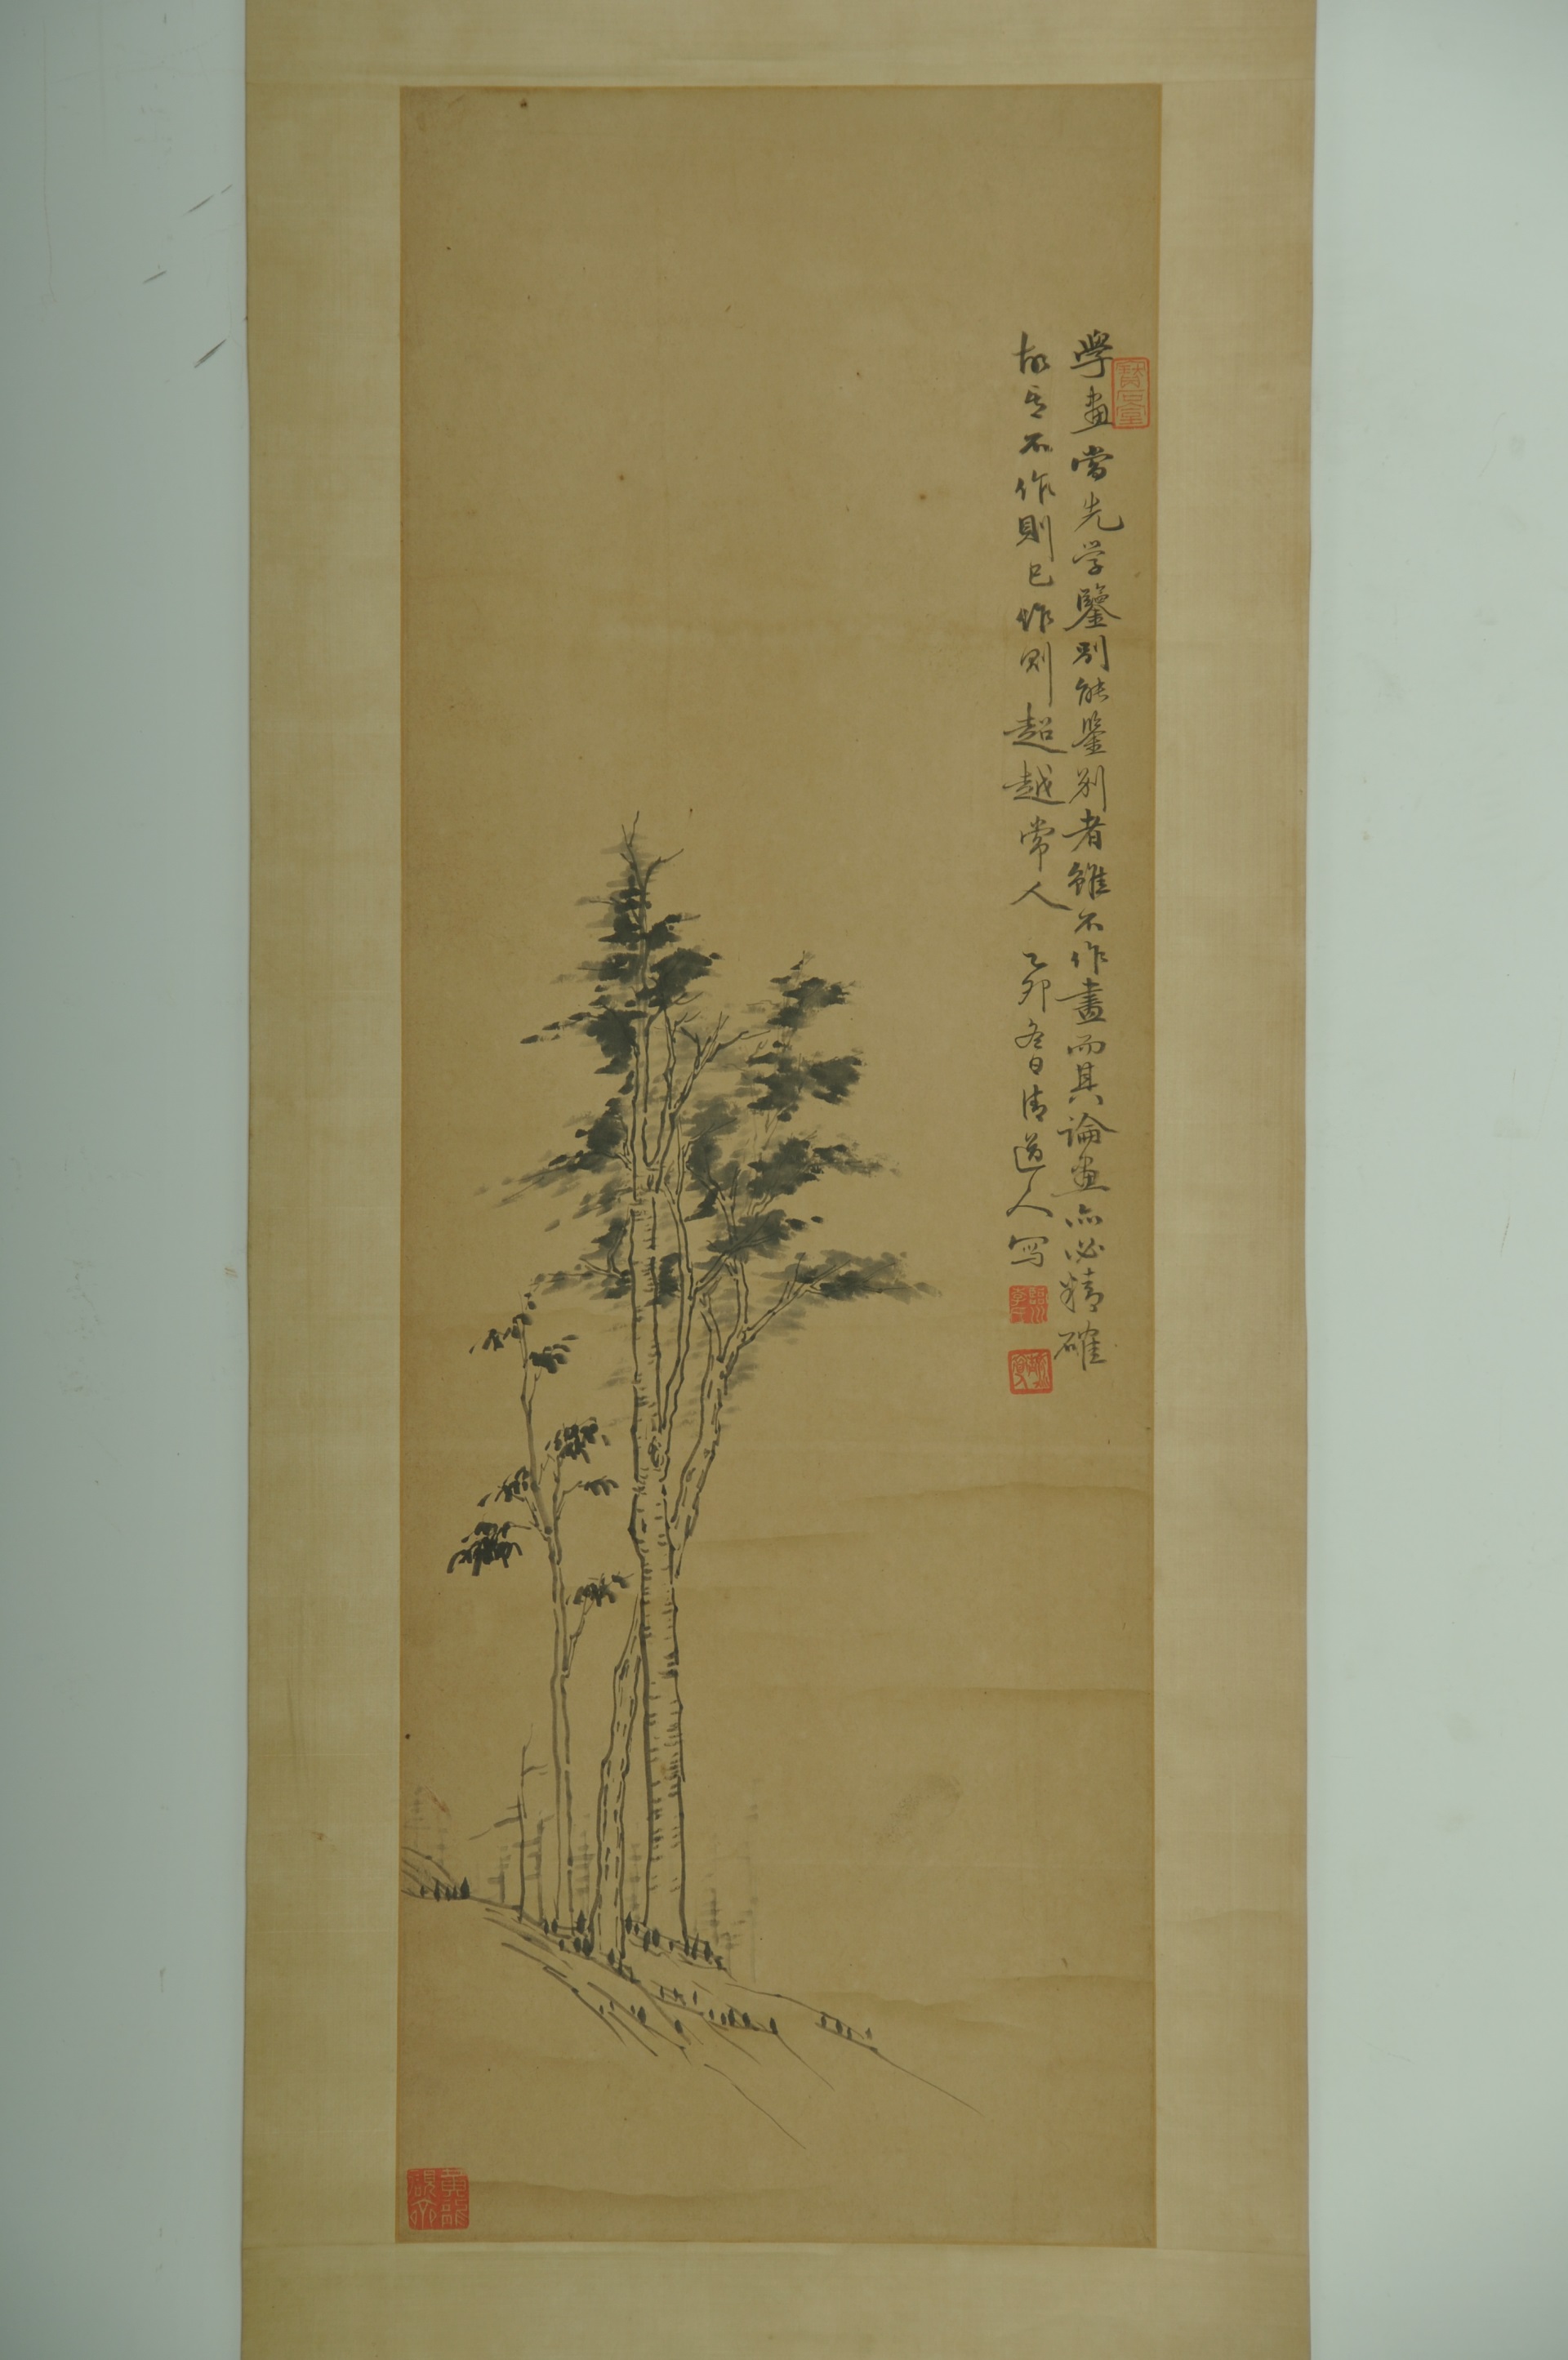 學畫當先学鑒別能鑒别者雖不作畫而其論畫亦必精確
故吾不作則已作则超越常人 乙卯冬日清道人写
寶石室
黃龍硯齋